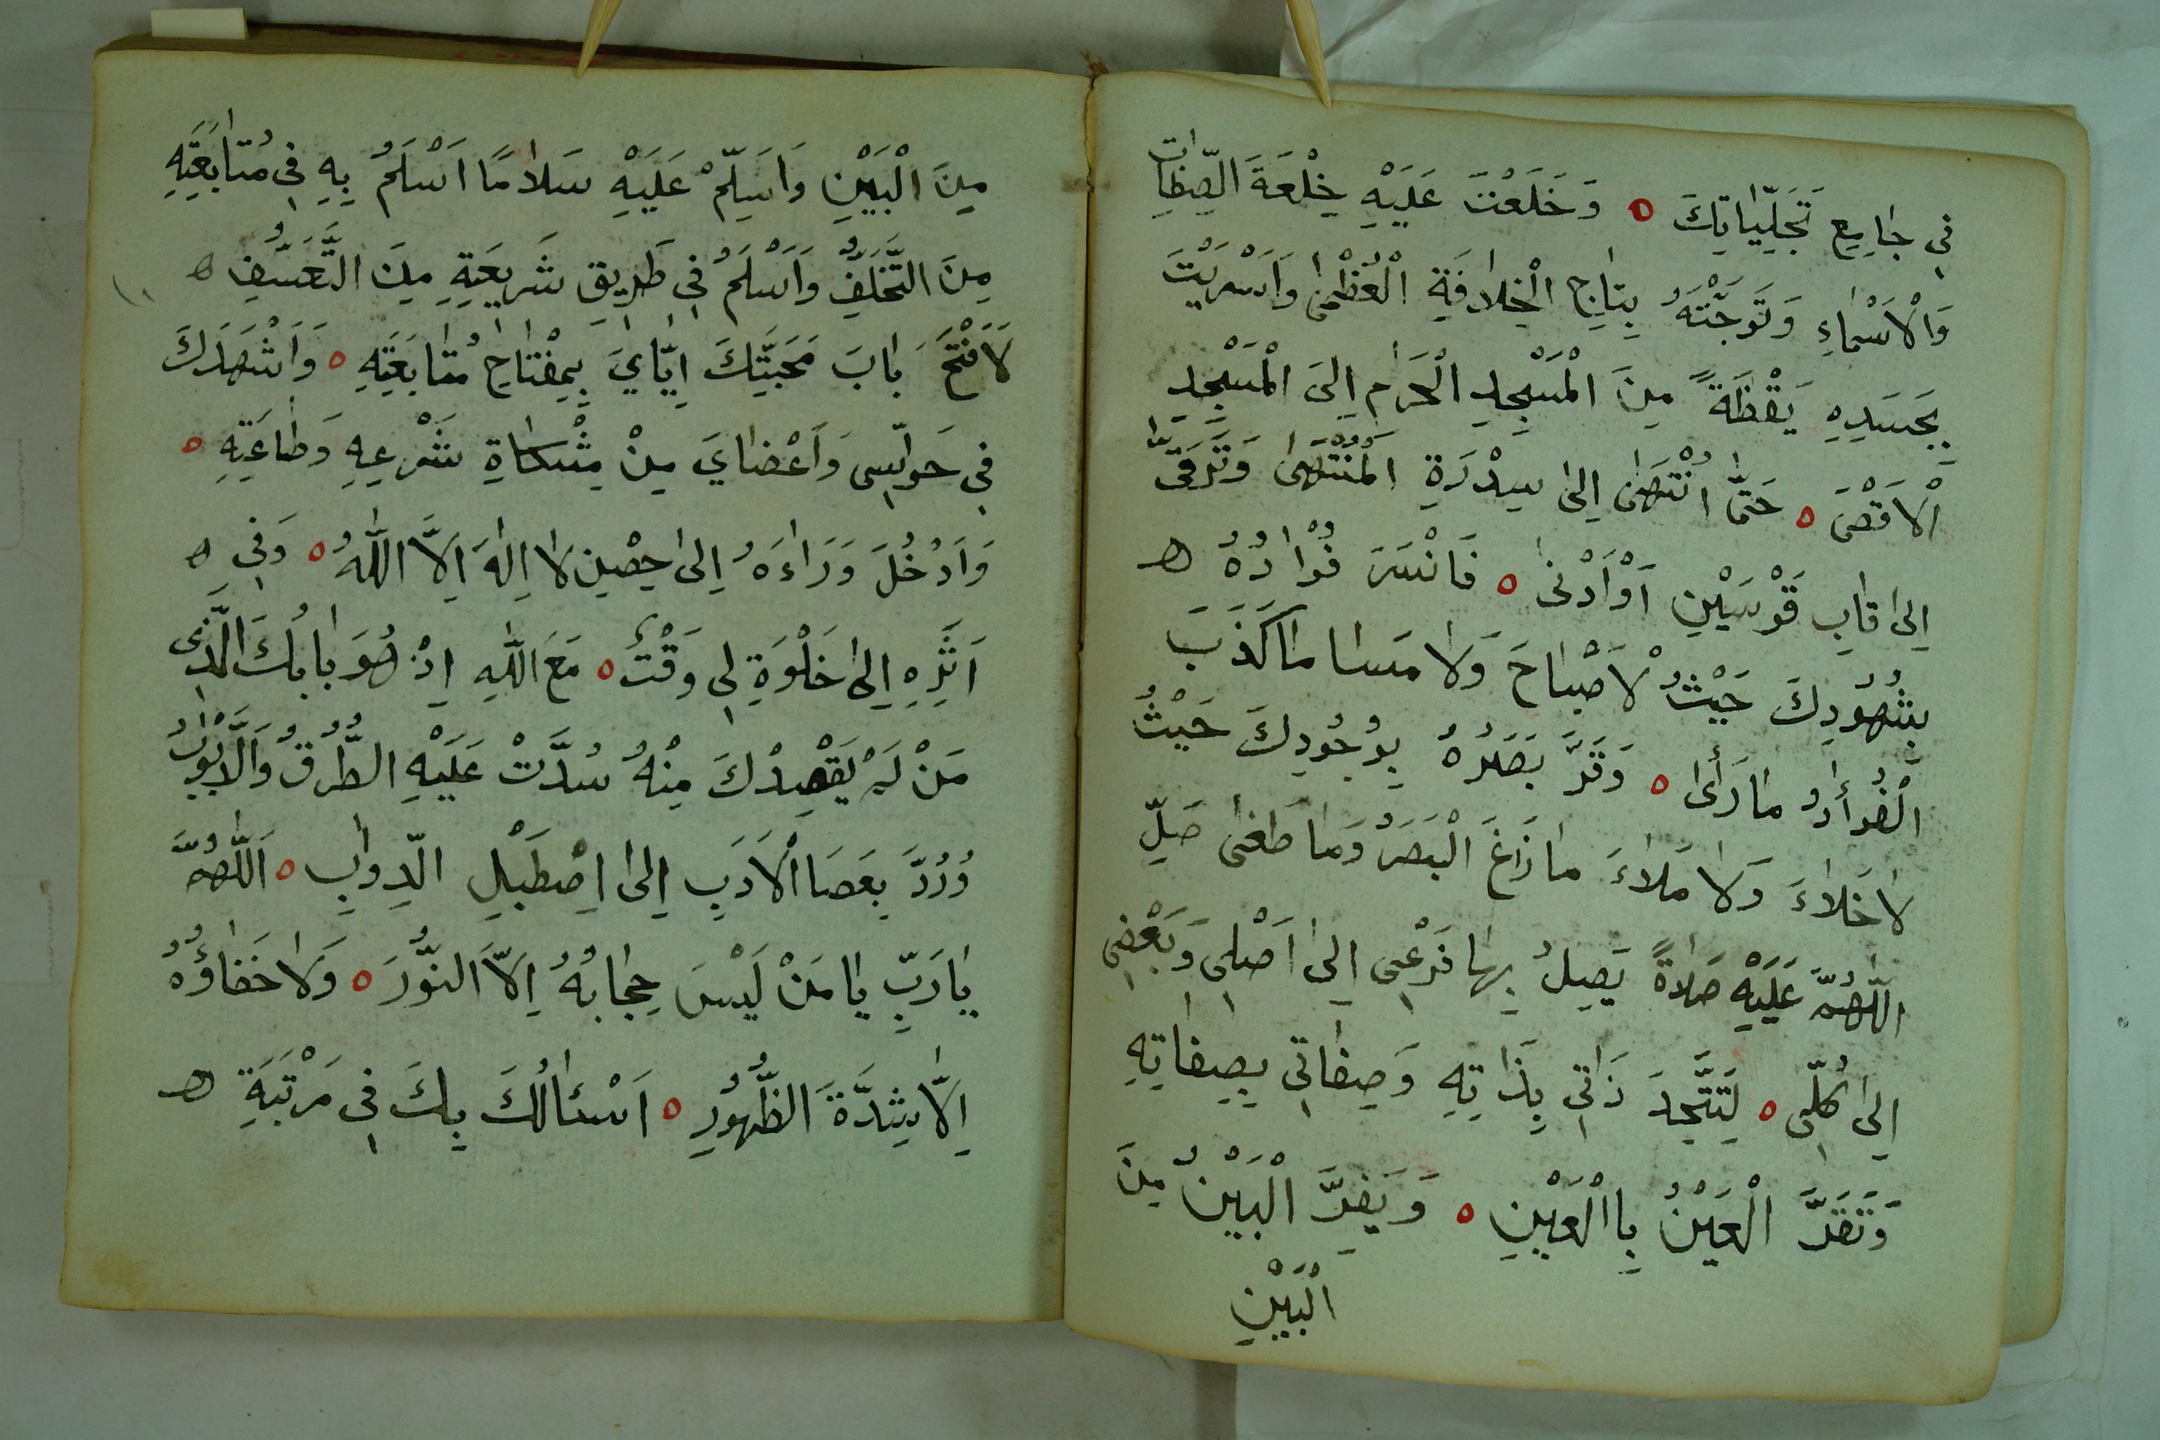 في جَامِعِ تَجَلِّيَاتِكَ ه وَخَلَعْتَ عَلَيْهِ خِلْعَةَ الصِّفَاتِ
وَالْاَسْمَاءِ وَتَوَجْتَهُ بِتَاجِ الْخِلَافَةِ الْعُظْمٰى وَاَسْرَيْتَ
بِجَسَدِهِ يَقْظَةً مِنَ الْمَسْجِدِ الْحَرَامِ اِلَى الْمَسْجِدِ
الْاَقْصَى ه حَتَّى انْتَهٰى اِلٰى سِدْرَةِ الْمُنْتَهٰى وَتَرَقّٰى
اِلٰى قَابِ قَوْسَيْنِ اَوْاَدْنٰى ه فَانْسَرَ فُؤَادُهُ ه
بِشُهُودِكَ حَيْثُ لَاصَبَاحَ وَلَا مَسَا مَا كَذَبَ
الْفُؤَادُ مَارَأٰى ه وَقَرَّ بَصَرُهُ بِوُجُودِكَ حَيْثُ
لَاخَلَاءَ وَلَا مَلَاءَ مَا زَاغَ الْبَصَرُ وَمَا طَغٰى صَلِّ
اللّٰهُمَّ عَلَيْهِ صَلَاةً يَصِلُ بِهَا فَرْعِى اِلٰى اَصْلِى وَبَعْضِى
اِلٰى كُلِّى ه لِتَتَّحِدَ ذَاتِى بِذَاتِهِ وَصِفَاتِى بِصِفَاتِهِ
وَتَقَرَّ الْعَيْنُ بِاالْعَيْنِ ه وَيَفِرَّ الْبَيْنُ مِنَ
الْبَيْنِ
مِنَ الْبَيْنِ وَاَسَلِّمْ عَلَيْهِ سَلَامًا اَسْلَمُ بِهِ فِى مُتَابَعَتِهِ
مِنَ التَّخَلُّفِ وَاَسْلَمُ فِى طَرِيقِ شَرِيعَتِهِ مِنَ التَّعَسُّفِ ه
لَاَفْتَحَ بَابَ مَحَبَّتِكَ اِيَّايَ بِمِفْتَاحِ مُتَابَعَتِهِ ه وَاَشْهَدَكَ
فِى حَوَاسِّى وَاَعْضَايَ مِنْ مِشْكَاةِ شَرْعِهِ وَطَاعَتِهِ ه
وَاَدْخُلَ وَرَاءَهُ اِلٰى حِصْنِ لَا اِلٰهَ اِلَّا اللّٰهُ ه وَفِى ه
اَثَرِهِ اِلٰى خَلْوَةِ لِى وَقْتٌ ه مَعَ اللّٰهِ اِذْ هُوَ بَابُكَ الَّذِى
مَنْ لَمْ يَقْصِدْكَ مِنْهُ سُدَّتْ عَلَيْهِ الطُّرُقُ وَالْاَبْوَابُ
وَرُدَّ بِعَصَا الْاَدَبِ اِلٰى اِصْطَبْلِ الدِّوَابِ ه اَللّٰهُمَّ
يَارَبِّ يَا مَنْ لَيْسَ حِجَابُهُ اِلَّا النُّورَ ه وَلَا خَفَاؤُهُ
اِلَّا شِدَّةَ الظُّهُورِ ه اَسْئَالُكَ بِكَ فِى مَرْتَبَةِ ه